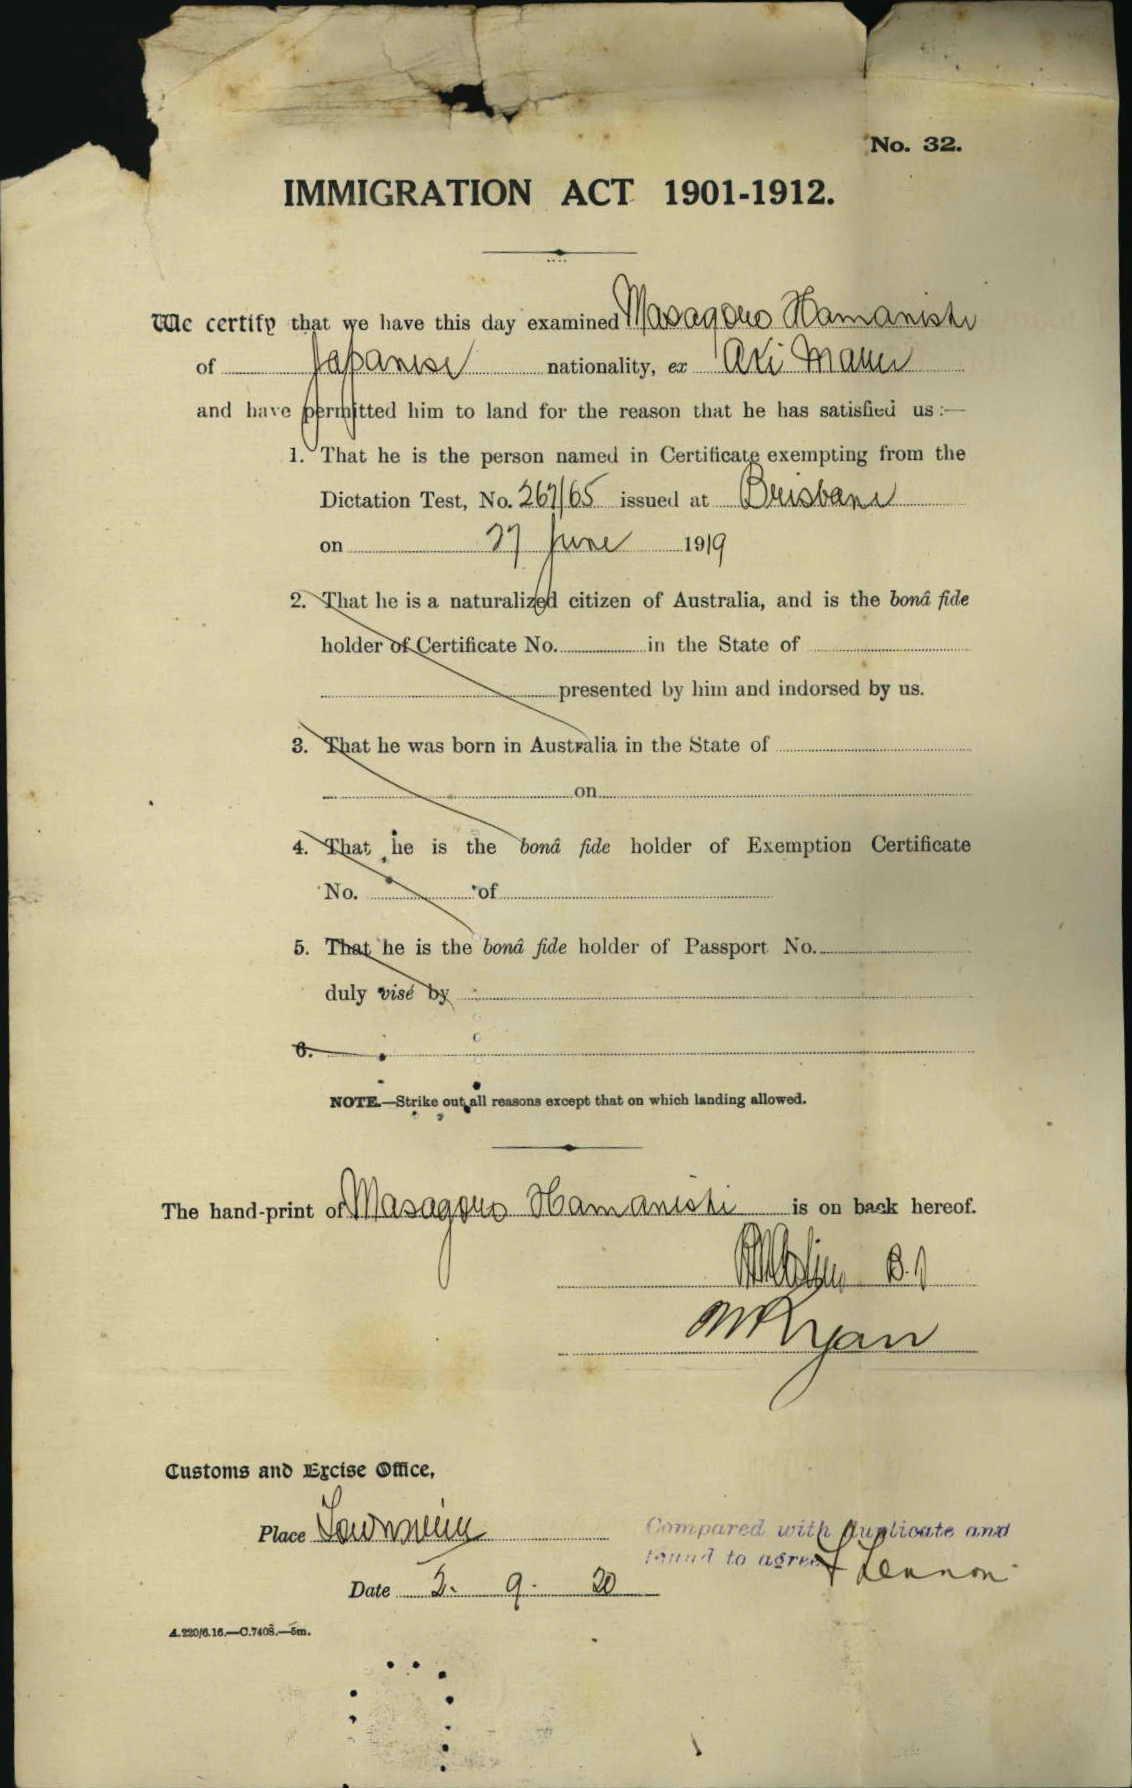 No. 32.
IMMIGRATION ACT 1901-1912.
We certify that we have this day examined Masagoro Hamanishi
of Japanese nationality, ex Aki Maru
and have permitted him to land for the reason that he has satisfied us :—
1. That he is the person named in Certificate exempting from the
Dictation Test, No. 267/65 issued at Brisbane
on 27 June 1919
2. That he is a naturalized citizen of Australia, and is the bonâ fide
holder of Certificate No. in the State of
presented by him and indorsed by us.
3. That he was born in Australia in the State of
on
4. That he is the bonâ fide holder of Exemption Certificate
No. of
5. That he is the bonâ fide holder of Passport No.
duly visé by
6.
NOTE.—Strike out all reasons except that on which landing allowed.
The hand-print of Masagoro Hamanishi is on back hereof.
Ryan
Customs and Excise Office,
Place Townsville
Compared with duplicate and
found to agree Lennon
Date 2. 9. 20
A.220/6.16.—C.7408.—5m.